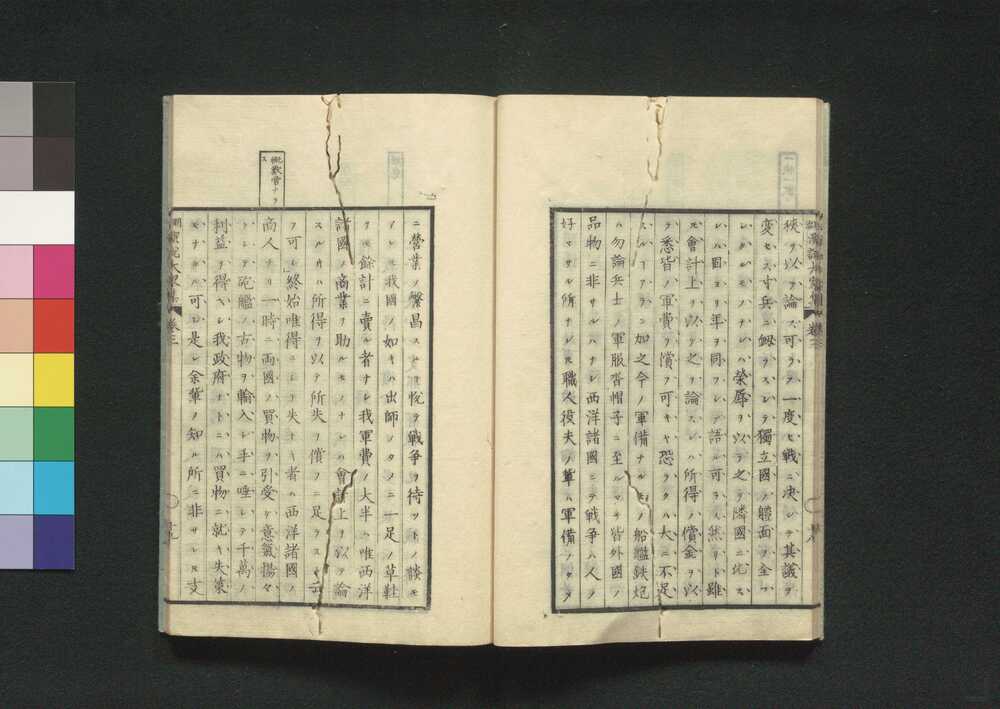 狹ヲ以テ論ス可ラス一度ヒ戰ニ決シテ其議ヲ
變セス寸兵ニ衂ヲスレテ獨立國ノ軆面ヲ全フ
シタルモノナレハ榮辱ヲ以テ之ヲ隣國ニ比ス
レハ固ヨリ年ヲ同フシテ語ル可ラス然リト雖
モ會計上ヲ以テ之ヲ論スレハ所得ノ償金ヲ以
テ悉皆ノ軍費ヲ償フ可キヤ恐ラクハ大ニ不足
スルアラン加之今ノ軍備ナルモノ船艦鉄炮
ハ勿論兵士ノ軍服沓帽子ニ至ルマテ皆外國ノ
品物ニ非サルハナシ西洋諸國ニテ戰爭ハ人ノ
好マサル所ナレトモ職人役夫ノ輩ハ軍備ノタメ
ニ營業ノ繁昌スルヲ悅ヲ戰爭ヲ待ツトノ談モ
アレトモ我國ノ如キハ出師ノタメニ一足ノ草鞋
ヲモ餘計ニ賣ル者ナシ我軍費ノ大半ハ唯西洋
諸國ノ商業ヲ助ルモノナレハ會計上ヲ以テ論
スルキハ所得ヲ以テ所失ヲ償フニ足ラスト云
フ可シ終始唯得ニシテ失ナキ者ハ西洋諸國ノ
商人ナリ一時ニ兩國ノ買物ヲ引受ケ意氣揚々
トシテ砲艦ノ古物ヲ輸入シ手ニ唾シテ千萬ノ
利益ヲ得ヘシ我政府ナトニハ買物ニ就キ失策
モナキハ可シ是レ余輩ノ知ル所ニ非サレトモ支
卷三
卷三